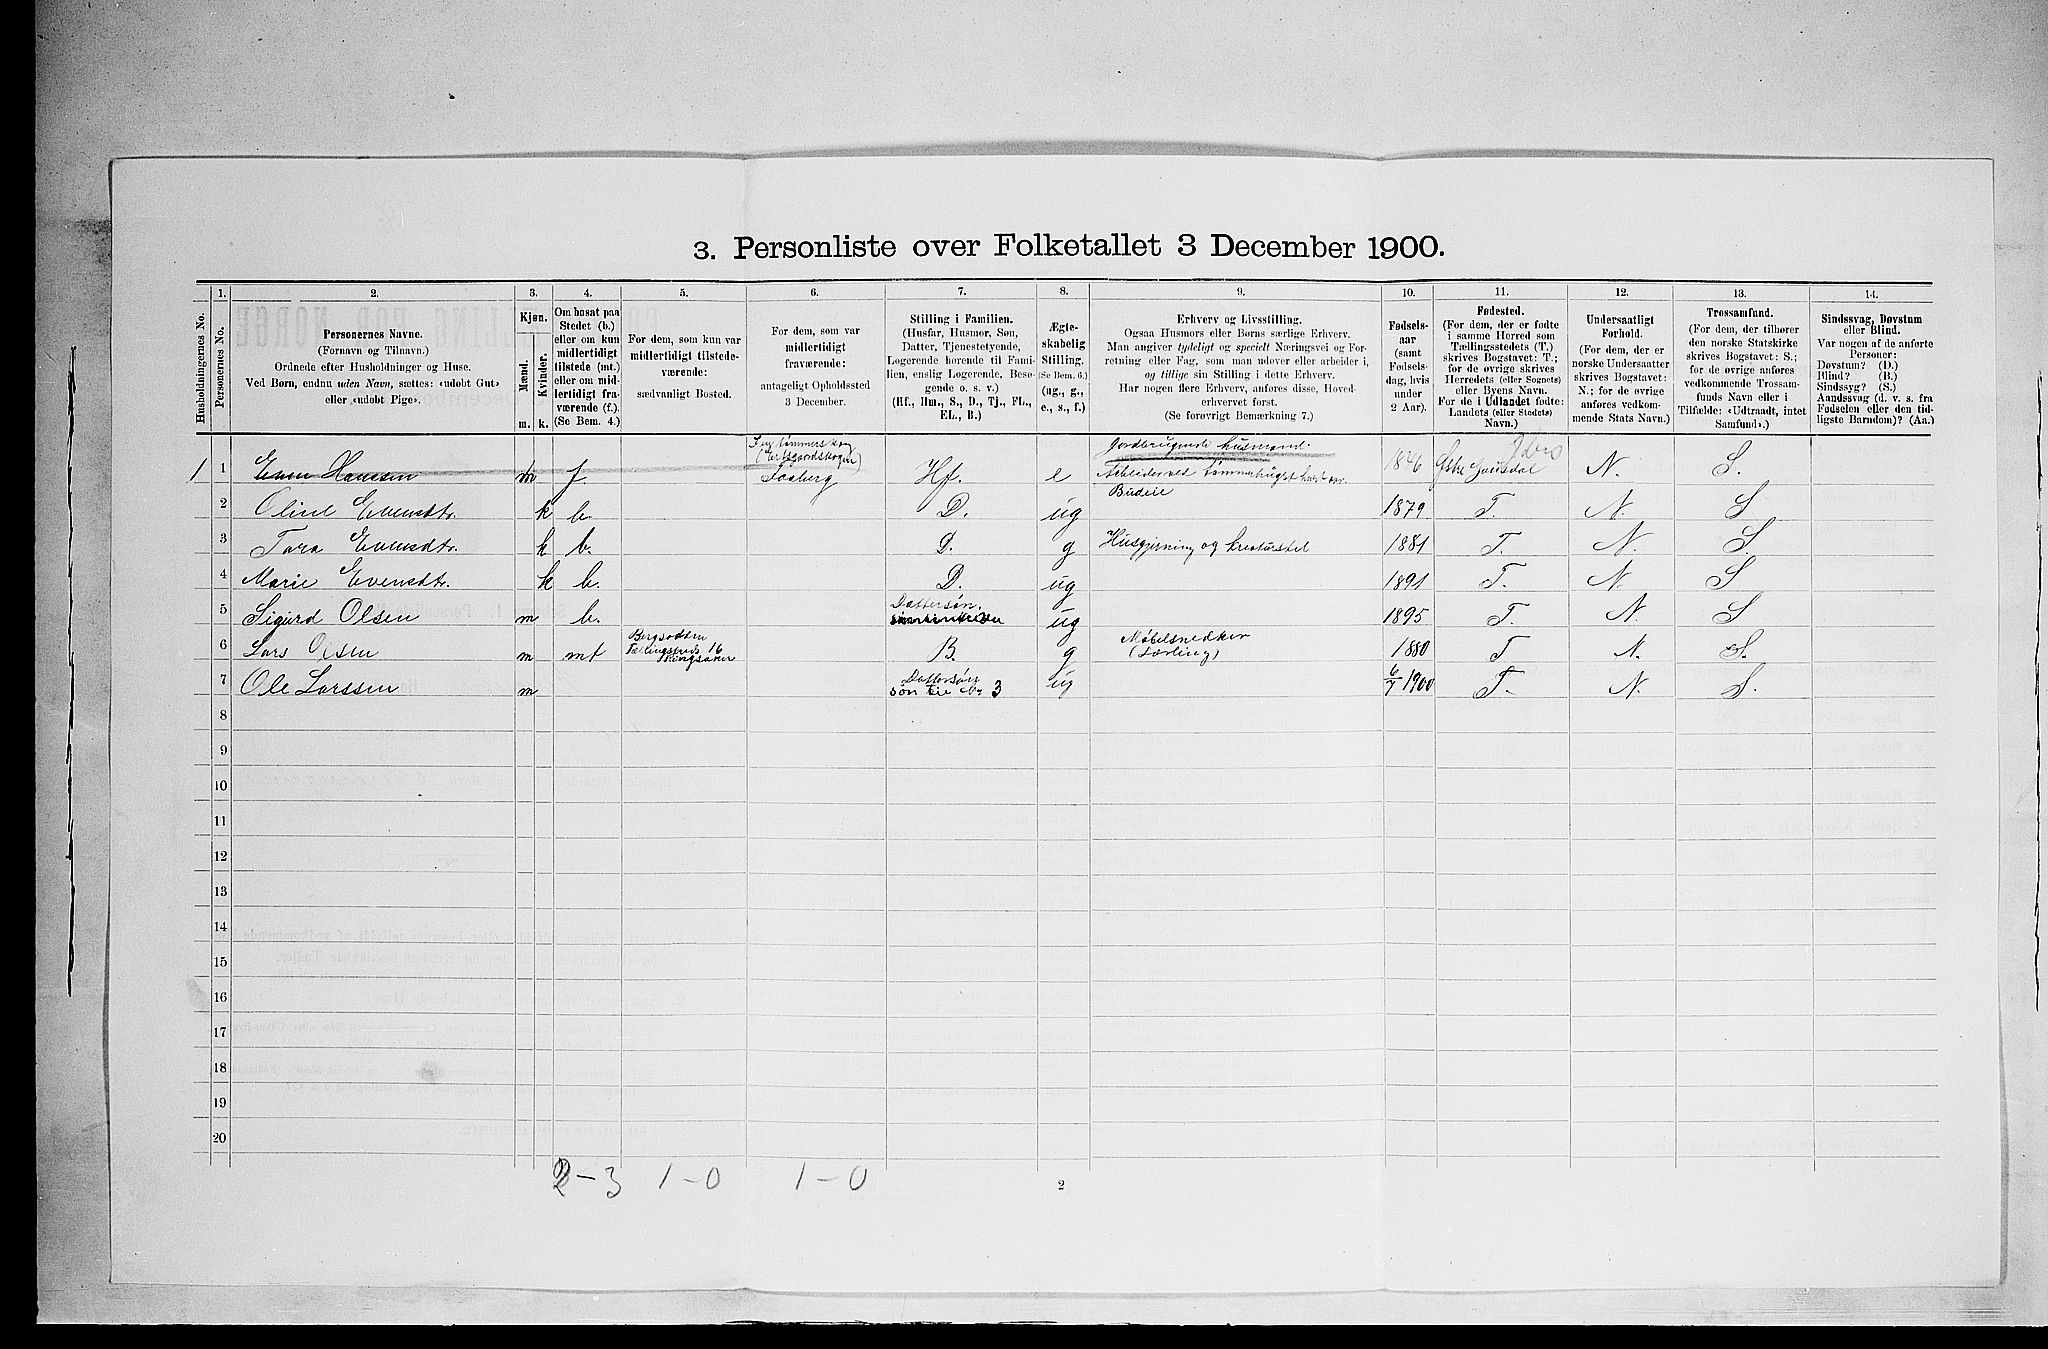 3. Personliste over Folketallet 3 December 1900.
Husholdningernes No.
1.
Personernes No.
2.
Personernes Navne.
(Fornavn og Tilnavn.)
Ordnede efter Husholdninger og Huse.
Ved Børn, endnu uden Navn, sættes: «udøbt Gut»
eller «udøbt Pige».
3.
Kjøn.
Mænd.
Kvinder.
m.
k.
4.
Om bosat paa
Stedet (b.)
eller om kun
midlertidigt
tilstede (mt.)
eller om mid-
lertidigt fra-
værende (f.).
(Se Bem. 4.)
5.
For dem, som kun var
midlertidigt tilstede-
værende:
sædvanligt Bosted.
6.
For dem, som var
midlertidigt
fraværende:
antageligt Opholdssted
3 December.
7.
Stilling i Familien.
(Husfar, Husmor, Søn,
Datter, Tjenestetyende,
Logerende hørende til Fami-
lien, enslig Logerende, Besø-
gende o. s. v.)
(Hf., Hm., S., D., Tj., FL.,
EL., B.)
8.
Ægte-
skabelig
Stilling.
(Se Bem. 6.)
(ug., g.,
e., s., f.)
9.
Erhverv og Livsstilling.
Ogsaa Husmors eller Børns særlige Erhverv.
Man angiver tydeligt og specielt Næringsvei og For-
retning eller Fag, som man udøver eller arbeider i,
og tillige sin Stilling i dette Erhverv.
Har nogen flere Erhverv, anføres disse, Hoved-
erhvervet først.
(Se forøvrigt Bemærkning 7.)
10.
Fødsels-
aar
(samt
Fødsels-
dag, hvis
under
2 Aar).
11.
Fødested.
(For dem, der er fødte
i samme Herred som
Tællingsstedets (T.)
skrives Bogstavet: T.;
for de øvrige skrives
Herredets (eller Sognets)
eller Byens Navn.
For de i Udlandet fødte:
Landets (eller Stedets)
Navn.)
12.
Undersaatligt
Forhold.
(For dem, der er
norske Undersaatter
skrives Bogstavet:
N.; for de øvrige
anføres vedkom-
mende Stats Navn.)
13.
Trossamfund.
(For dem, der tilhører
den norske Statskirke
skrives Bogstavet: S.;
for de øvrige anføres
vedkommende Trossam-
funds Navn eller i
Tilfælde: «Udtraadt, intet
Samfund».)
14.
Sindssvag, Døvstum
eller Blind.
Var nogen af de anførte
Personer:
Døvstum? (D.)
Blind? (B.)
Sindssyg? (S.)
Aandssvag (d. v. s. fra
Fødselen eller den tid-
ligste Barndom)? (Aa.)
1 1 Even Hansen m f Faaberg Hf. e Jordbrugende husmand. 1846 Gausdal N. S.
2 Oline Evensdtr. k b. D. ug Budeie 1879 T. N. S
3 Tora Evensdtr. k b. D. g Husgjerning og kreaturstel 1881 T. N. S.
4 Marie Evensdtr. k b. D. ug 1891 T. N. S
5 Sigurd Olsen m b. Dattersøn. ug 1895 T. N. S
6 Lars Olsen m mt Ringsaker B. g Møbelsnedker (Lærling) 1880 T N. S.
7 Ole Larssen m Dattersøn søn til No 3 ug 6/7 1900 T. N. S.
8
9
10
11
12
13
14
15
16
17
18
19
20
2-3 1-0 1-0
2